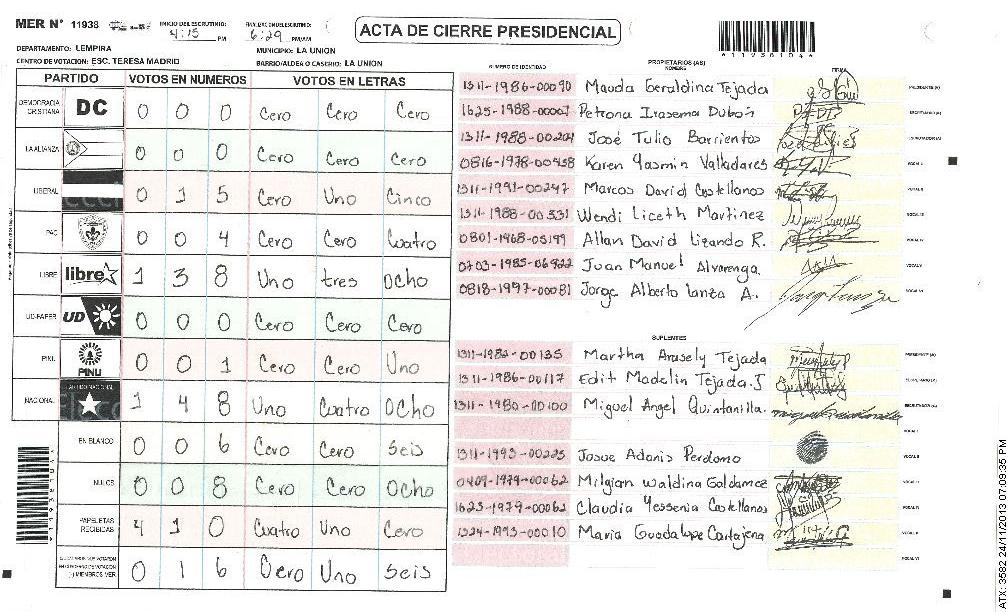 MER N° 11938
INICIO DEL ESCRUTINIO: 4:15 PM
FINALIZACION DEL ESCRUTINIO: 6:29 PM/AM
ACTA DE CIERRE PRESIDENCIAL
*11938104*
DEPARTAMENTO: LEMPIRA
MUNICIPIO: LA UNION
CENTRO DE VOTACION: ESC. TERESA MADRID
BARRIO/ALDEA O CASERIO: LA UNION
PARTIDO VOTOS EN NUMEROS VOTOS EN LETRAS
DEMOCRACIA CRISTIANA DC 0 0 0 Cero Cero Cero
LA ALIANZA 0 0 0 Cero Cero Cero
LIBERAL 0 1 5 Cero Uno Cinco
PAC 0 0 4 Cero Cero Cuatro
LIBRE libre 1 3 8 Uno tres Ocho
UD-FAPER UD 0 0 0 Cero Cero Cero
PINU PINU 0 0 1 Cero Cero Uno
NACIONAL 1 4 8 Uno Cuatro Ocho
EN BLANCO 0 0 6 Cero Cero Seis
NULOS 0 0 8 Cero Cero Ocho
PAPELETAS RECIBIDAS 4 1 0 Cuatro Uno Cero
0 1 6 Cero Uno Seis
NUMERO DE IDENTIDAD
PROPIETARIOS (AS)
NOMBRE
FIRMA
1311-1986-00090 Mauda Geraldina Tejada PRESIDENTE (A)
1625-1988-00007 Petrona Irasema Dubón SECRETARIO (A)
1311-1988-00201 José Tulio Barrientos ESCRUTADOR (A)
0816-1978-00458 Karen Yasmin Valladares VOCAL I
1311-1991-00247 Marcos David Castellanos VOCAL II
1311-1988-00331 Wendi Liceth Martinez VOCAL III
0801-1968-05199 Allan David Lizando R. VOCAL IV
0703-1985-06922 Juan Manuel Alvarenga. VOCAL V
0818-1997-00081 Jorge Alberto Lanza A. VOCAL VI
SUPLENTES
1311-1982-00135 Martha Arasely Tejada PRESIDENTE (A)
1311-1986-00117 Edit Madelin Tejada.J SECRETARIO (A)
1311-1980-00100 Miguel Angel Quintanilla. ESCRUTADOR (A)
VOCAL I
1311-1993-00225 Josue Adonis Perdomo VOCAL II
0409-1979-00062 Milgian Waldina Galdamez
1623-1979-00062 Claudia Yessenia Castellanos VOCAL IV
1324-1993-00010 Maria Guadalupe Cartajena VOCAL V
VOCAL VI
ATX: 3582 24/11/2013 07:09:35 PM